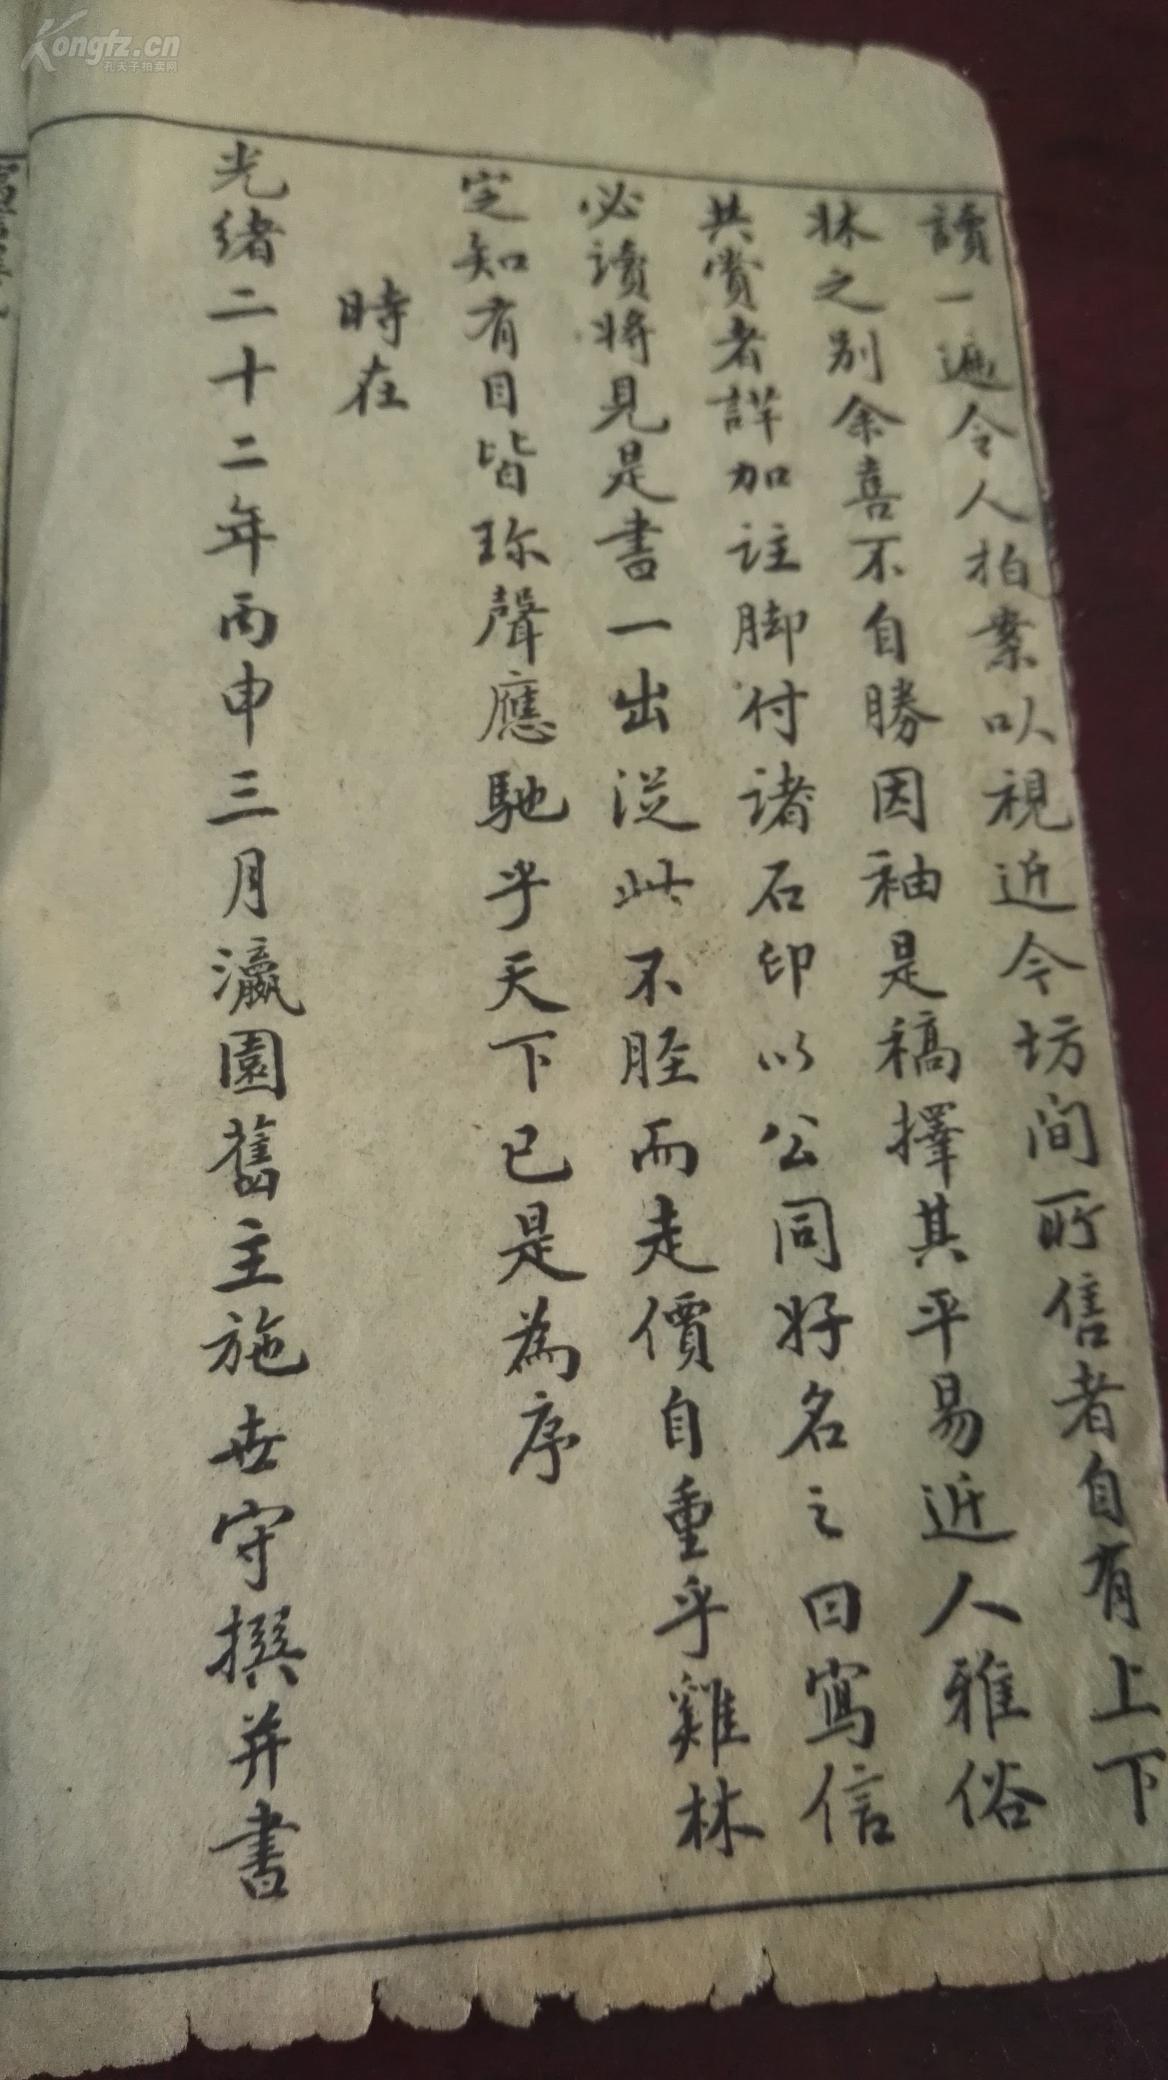 讀一遍令人拍案以視近今坊間所售者自有上下
牀之別余喜不自勝因袖是稿擇其平易近人雅俗
共賞者詳加註脚付諸石印以公同好名之曰寫信
必讀將見是書一出從此不脛而走價自重乎雞林
定知有目皆珍聲應馳乎天下已是為序
時在
光緒二十二年丙申三月瀛園舊主施世守撰并書
Kongfz.cn
孔夫子拍卖网